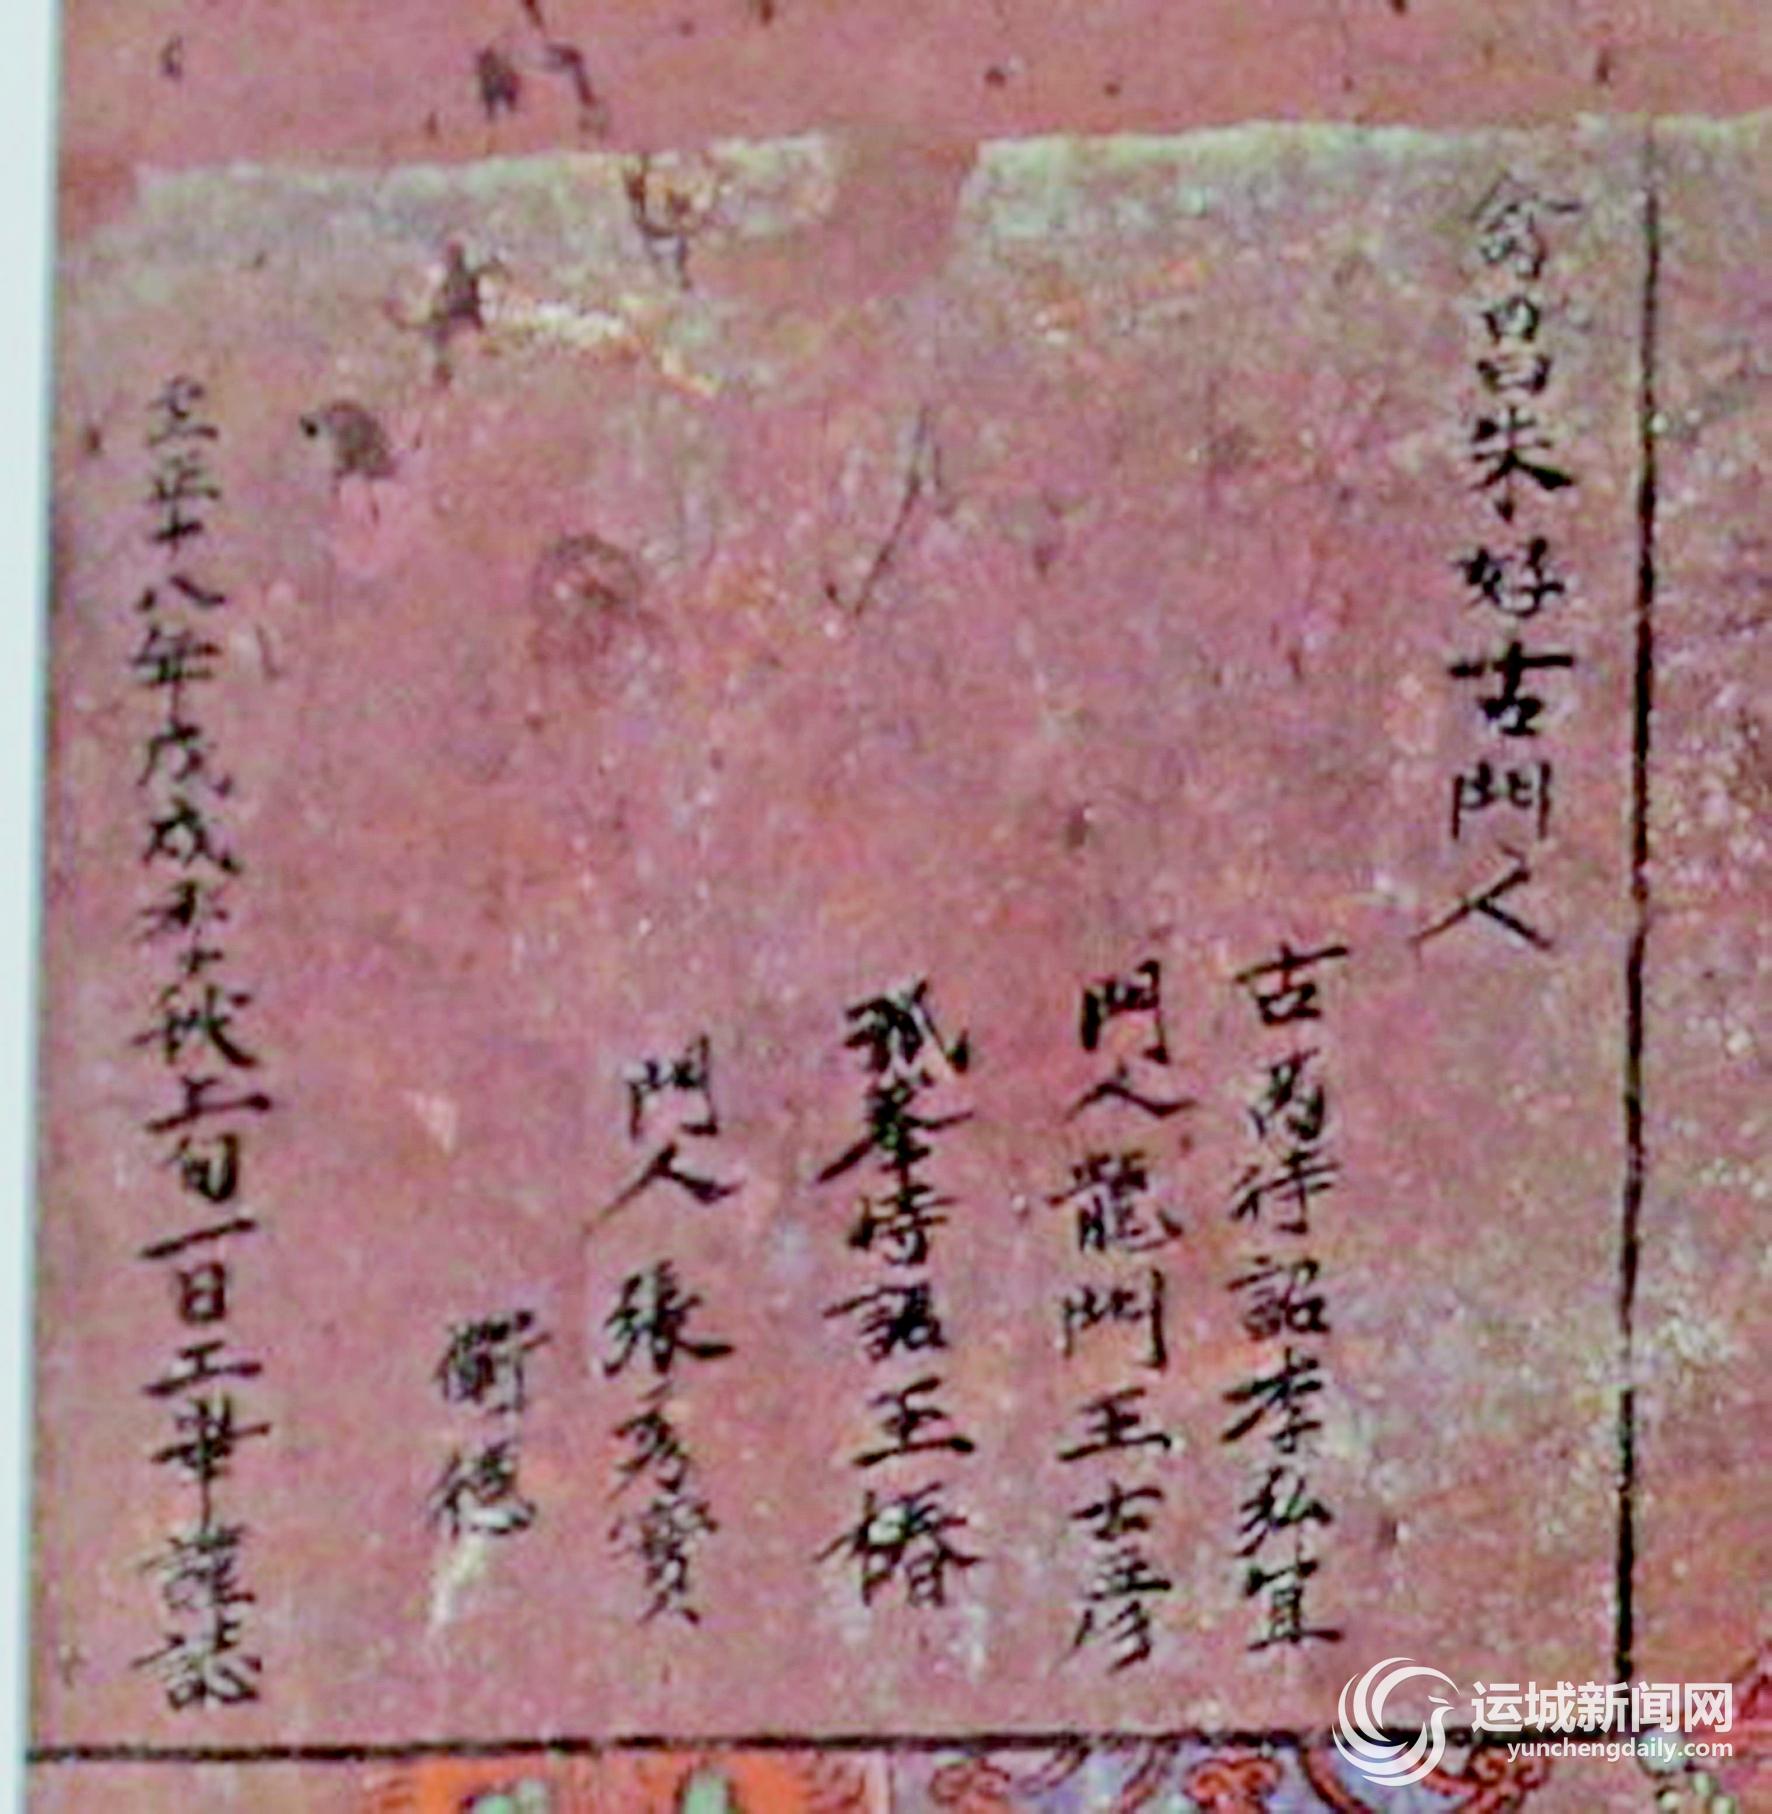 禽昌朱好古門人
古芮待詔李弘宜
門人龍門王士彥
孤峯待詔王椿
門人張秀實
衛德
至正十八年戊戌季秋上旬一日工畢謹誌
运城新闻网
yunchengdaily.com